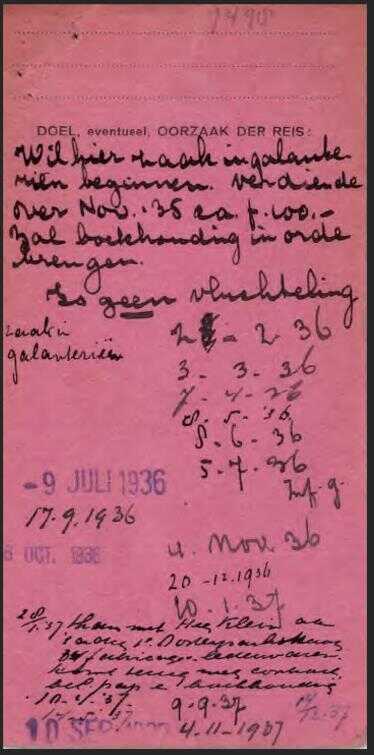 1498
DOEL, eventueel, OORZAAK DER REIS:
Wil hier zaak in galante-
riën beginnen. Verdiende
over Nov. '35 ca. f. 100.-
Zal boekhouding in orde
brengen.
Is geen vluchteling
zaak in
galanteriën
28 - 2 - 36
3 - 3 - 36
7 - 4 - 36
8 - 5 - 36
8 - 6 - 36
5 - 7 - 36
- 9 JULI 1936
17.9.1936
8 OCT. 1936
4. Nov. 36
20 -12.1936
10.1.37
28/1.37 met Klein
komt terug met contract
bel. pap. e boekhouding
9.9.37
10 SEP 1937
4.11-1937